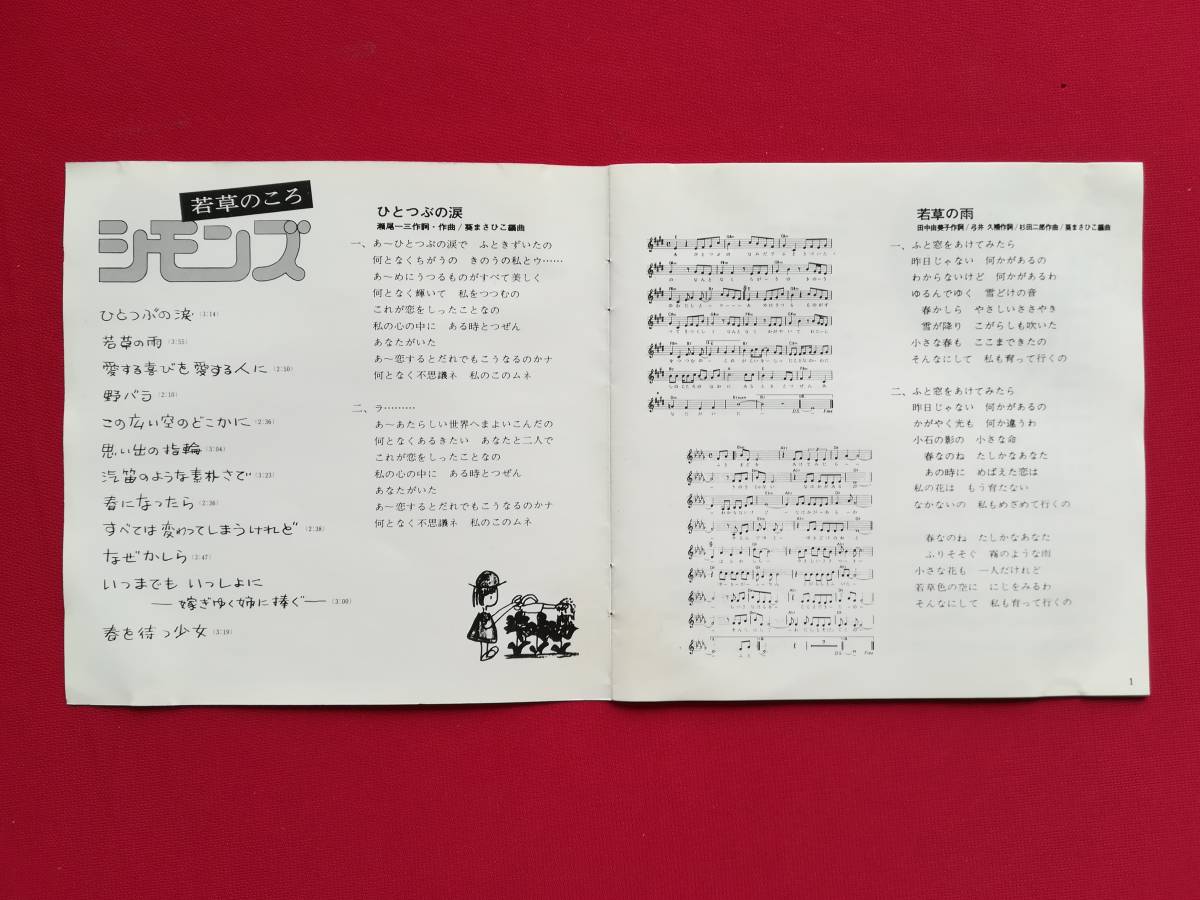 若草のころ
シモンズ
ひとつぶの涙 (3:14)
若草の雨 (3:55)
愛する喜びを愛する人に (2:50)
野バラ (2:16)
この広い空のどこかに (2:36)
思い出の指輪 (3:04)
汽笛のような素朴さで (3:23)
春になったら (2:36)
すべては変わってしまうけれど (2:38)
なぜかしら (2:47)
いつまでも いっしょに
―嫁ぎゆく姉に捧ぐ― (3:00)
春を待つ少女 (3:19)
ひとつぶの涙
瀬尾一三作詞・作曲/葵まさひこ編曲
一、あ〜ひとつぶの涙で ふときずいたの
何となくちがうの きのうの私とゥ……
あ〜めにうつるものがすべて美しく
何となく輝いて 私をつつむの
これが恋をしったことなの
私の心の中に ある時とつぜん
あなたがいた
あ〜恋するとだれでもこうなるのかナ
何となく不思議ネ 私のこのムネ
二、ラ………
あ〜あたらしい世界へまよいこんだの
何となくあるきたい あなたと二人で
これが恋をしったことなの
私の心の中に ある時とつぜん
あなたがいた
あ〜恋するとだれでもこうなるのかナ
何となく不思議ネ 私のこのムネ
若草の雨
田中由美子作詞/弓井 久補作詞/杉田二郎作曲/葵まさひこ編曲
一、ふと窓をあけてみたら
昨日じゃない 何かがあるの
わからないけど 何かがあるわ
ゆるんでゆく 雪どけの音
春かしら やさしいささやき
雪が降り こがらしも吹いた
小さな春も ここまできたの
そんなにして 私も育って行くの
二、ふと窓をあけてみたら
昨日じゃない 何かがあるの
かがやく光も 何か違うわ
小石の影の 小さな命
春なのね たしかなあなた
あの時に めばえた恋は
私の花は もう育たない
なかないの 私もめざめて行くの
春なのね たしかなあなた
ふりそそぐ 霧のような雨
小さな花も 一人だけれど
若草色の空に にじをみるわ
そんなにして 私も育って行くの
1